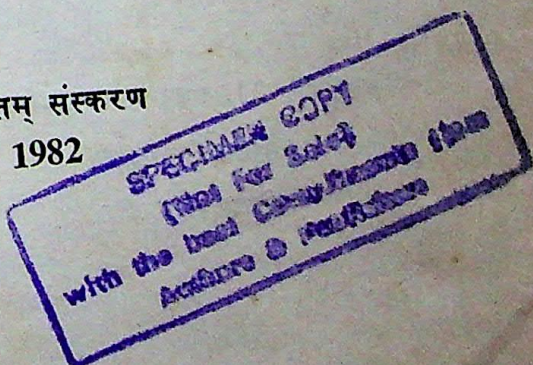 तम् संस्करण
1982
SPECIMEN COPY
(Not For Sale)
with the best Compliments from
Authors & Publishers